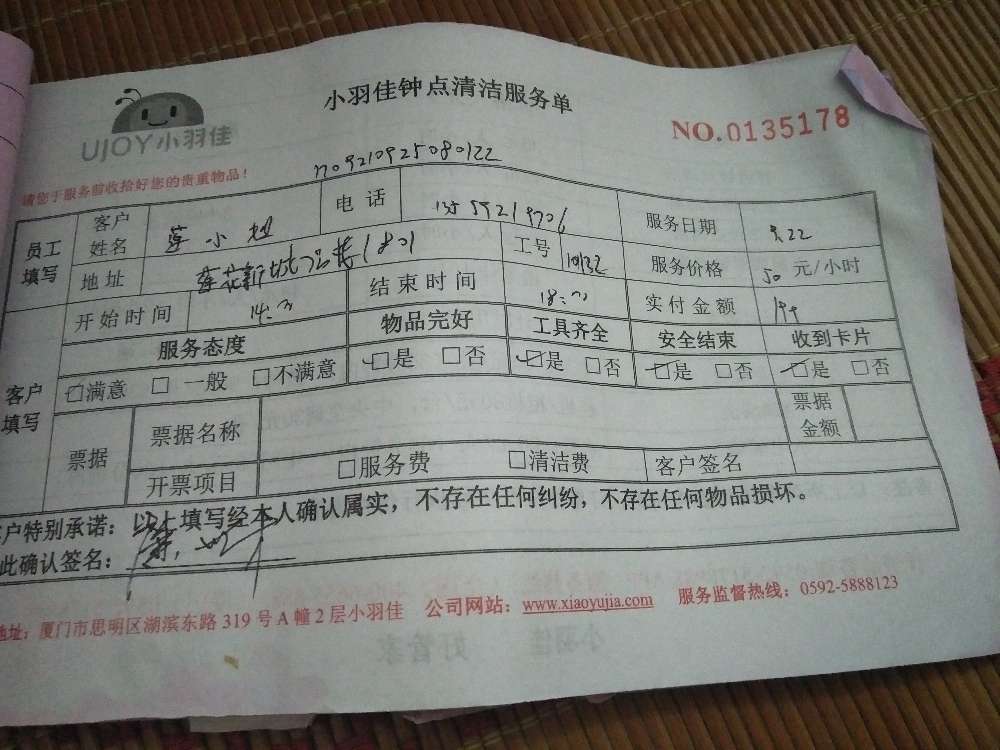 小羽佳钟点清洁服务单
UJOY小羽佳
NO.0135178
请您于服务前收拾好您的贵重物品!
no9210925080122
员工填写 客户姓名 小 电话 服务日期 22
地址 莲花新城 1801 工号 服务价格 50 元/小时
开始时间 14: 结束时间 18: 实付金额
客户填写 服务态度 物品完好 工具齐全 安全结束 收到卡片
☑满意 □ 一般 □不满意 ☑是 □否 ☑是 □否 ☑是 □否 ☑是 □否
票据 票据名称 票据金额
开票项目 □服务费 □清洁费 客户签名
户特别承诺: 以上填写经本人确认属实,不存在任何纠纷,不存在任何物品损坏。
此确认签名:
地址: 厦门市思明区湖滨东路 319 号 A 幢 2 层小羽佳 公司网站: www.xiaoyujia.com 服务监督热线: 0592-5888123